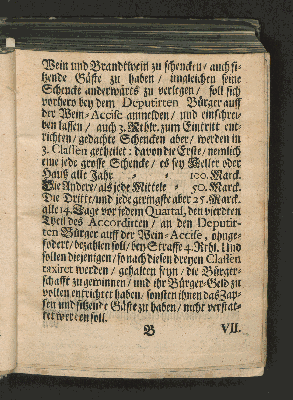 Wein und Brandtwein zu schencken / auch si-
tzende Gäste zu haben / ungleichen seine
Schencke anderwärts zu verlegen / soll sich
vorhero bey dem Deputirten Bürger auff
der Wein-Accise anmelden / und einschrei-
ben lassen / auch 3. Rthlr. zum Eintritt ent-
richten / gedachte Schencken aber / werden in
3. Classen getheilet: davon die Erste / nemlich
eine jede grosse Schencke / es sey Keller oder
Hauß alle Jahr 100. Marck.
Die Andere / als jede Mittele 50. Marck.
Die Dritte / und jede geringste aber 25. Marck.
alle 14. Tage vor jedem Quartal, den vierdten
Theil des Accordirten / an den Deputir-
ten Bürger auff der Wein-Accise, ohnge-
fodert / bezahlen soll / bey Straffe 4. Rthl. Und
sollen diejenigen / so nach diesen dreyen Classen
taxiret werden / gehalten seyn / die Bürger-
schafft zu gewinnen / und ihr Bürger-Geld zu
vollen entrichtet haben / sonsten ihnen das Zap-
fen und sitzende Gäste zu haben / nicht verstat-
tet werden soll.
B VII.